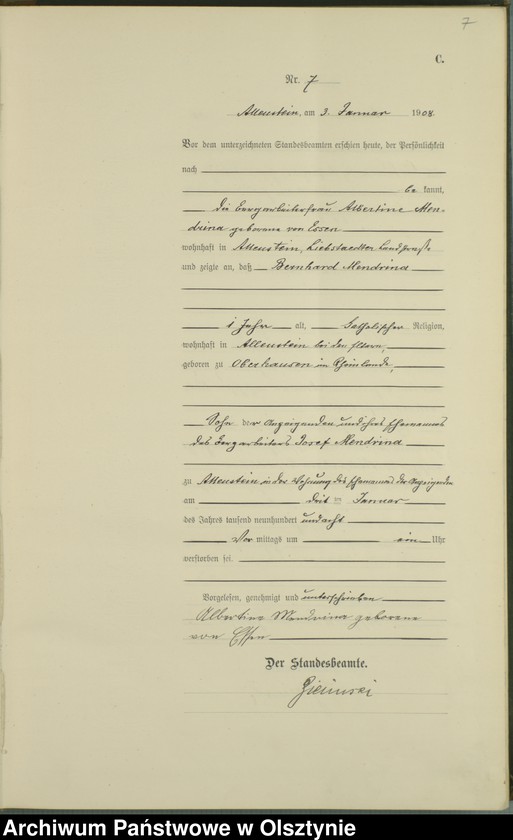 7
C.
Nr. 7
Allenstein, am 3. Januar 1908.
Vor dem unterzeichneten Standesbeamten erschien heute, der Persönlichkeit
nach
be kannt,
die Bergarbeiterfrau Albertine Men-
drina geborene von Essen
wohnhaft in Allenstein, Liebstaedter Landstraße
und zeigte an, daß Bernhard Mendrina
1 Jahr alt, katholischer Religion,
wohnhaft in Allenstein bei den Eltern,
geboren zu Oberhausen im Rheinlande,
Sohn der Anzeigenden und ihres Ehemannes
des Bergarbeiters Josef Mendrina
zu Allenstein in der Wohnung des Ehemannes der Anzeigenden
am drit ten Januar
des Jahres tausend neunhundert und acht
Vor mittags um ein Uhr
verstorben sei.
Vorgelesen, genehmigt und unterschrieben
Albertine Mendrina geborene
von Essen
Der Standesbeamte.
Archiwum Państwowe w Olsztynie